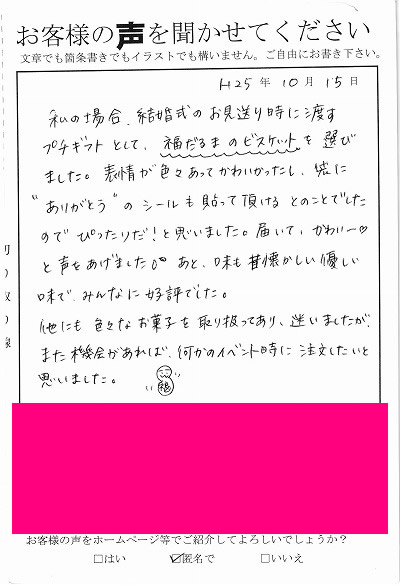 お客様の声を聞かせてください
文章でも箇条書きでもイラストでも構いません。ご自由にお書き下さい。
H25年10月15日
私の場合、結婚式のお見送り時に渡す
プチギフトとして、福だるまのビスケットを選び
ました。表情が色々あってかわいかったし、袋に
"ありがとう"のシールも貼って頂けるとのことでした
のでぴったりだ!と思いました。届いて、かわいー♡
と声をあげました。あと、味も昔懐かしい優しい
味で、みんなに好評でした。
他にも色々なお菓子を取り扱ってあり、迷いましたが、
また機会があれば、何かのイベント時に注文したいと
思いました。
福
お客様の声をホームページ等でご紹介してよろしいでしょうか?
□はい ☑匿名で □いいえ